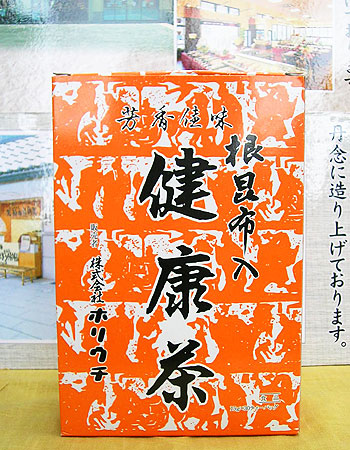 芳香佳味
根昆布入
健康茶
販売者
株式会社
ホリウチ
食品
丹念に造り上げております。